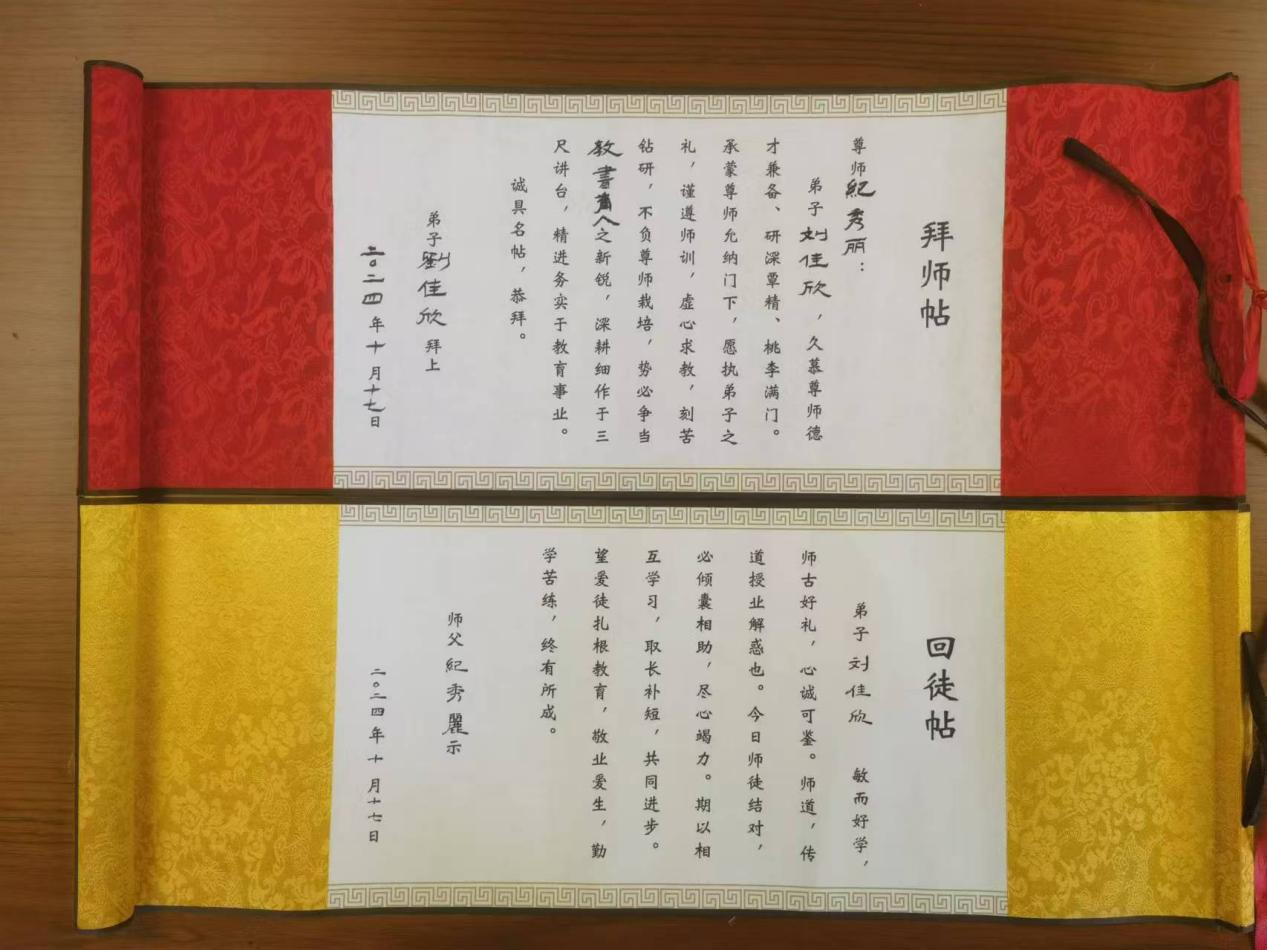 拜师帖
尊师紀秀丽：
弟子刘佳欣，久慕尊师德
才兼备、研深覃精、桃李满门。
承蒙尊师允纳门下，愿执弟子之
礼，谨遵师训，虚心求教，刻苦
钻研，不负尊师栽培，势必争当
教書育人之新锐，深耕细作于三
尺讲台，精进务实于教育事业。
诚具名帖，恭拜。
弟子劉佳欣拜上
二〇二四年十月十七日
回徒帖
弟子刘佳欣 敏而好学，
师古好礼，心诚可鉴。师道，传
道授业解惑也。今日师徒结对，
必倾囊相助，尽心竭力。期以相
互学习，取长补短，共同进步。
望爱徒扎根教育，敬业爱生，勤
学苦练，终有所成。
师父紀秀麗示
二〇二四年十月十七日